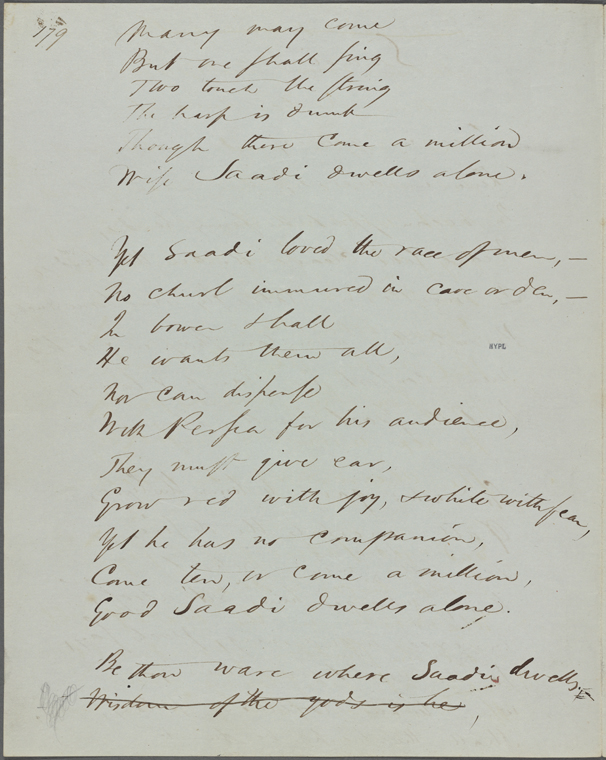 179
Many may come
But one shall sing
Two touch the string
The harp is dumb
Though there come a million
Wise Saadi dwells alone.
Yet Saadi loved the race of men, —
No churl immured in cave or den, —
In bower & hall
He wants them all,
Nor can dispense
With Persia for his audience,
They must give ear,
Grow red with joy, & white with fear,
Yet he has no companion,
Come ten, or come a million,
Good Saadi dwells alone.
Be thou ware where Saadi dwells.
Wisdom of the gods is he,
NYPL